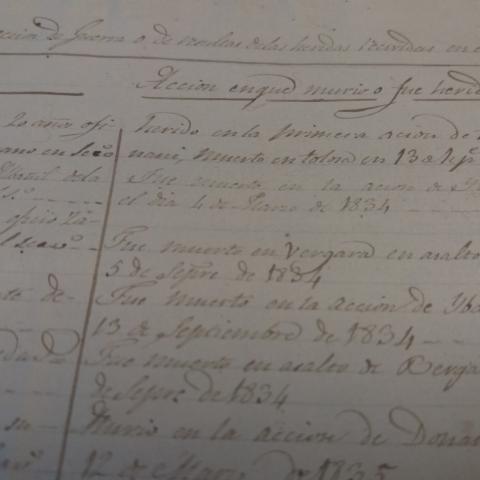 accion de Guerra o de resultas de las heridas recividas en
Accion en que murio o fue herid
20 años ofi herido en la primera acion de
muerto en tolosa en 13 de Sepe.
Fue muerto en la acion de
el dia 4 de Marzo de 1834
oficio Za-
Fue muerto en Vergara en asalto
5 de Sepre de 1834
de- Fue muerto en la acción de Yba
13 de Septiembre de 1834
Fue muerto en asalto de Berga
de Sepre de 1834
su Murio en la accion de Dona
12 de Marzo de 1835